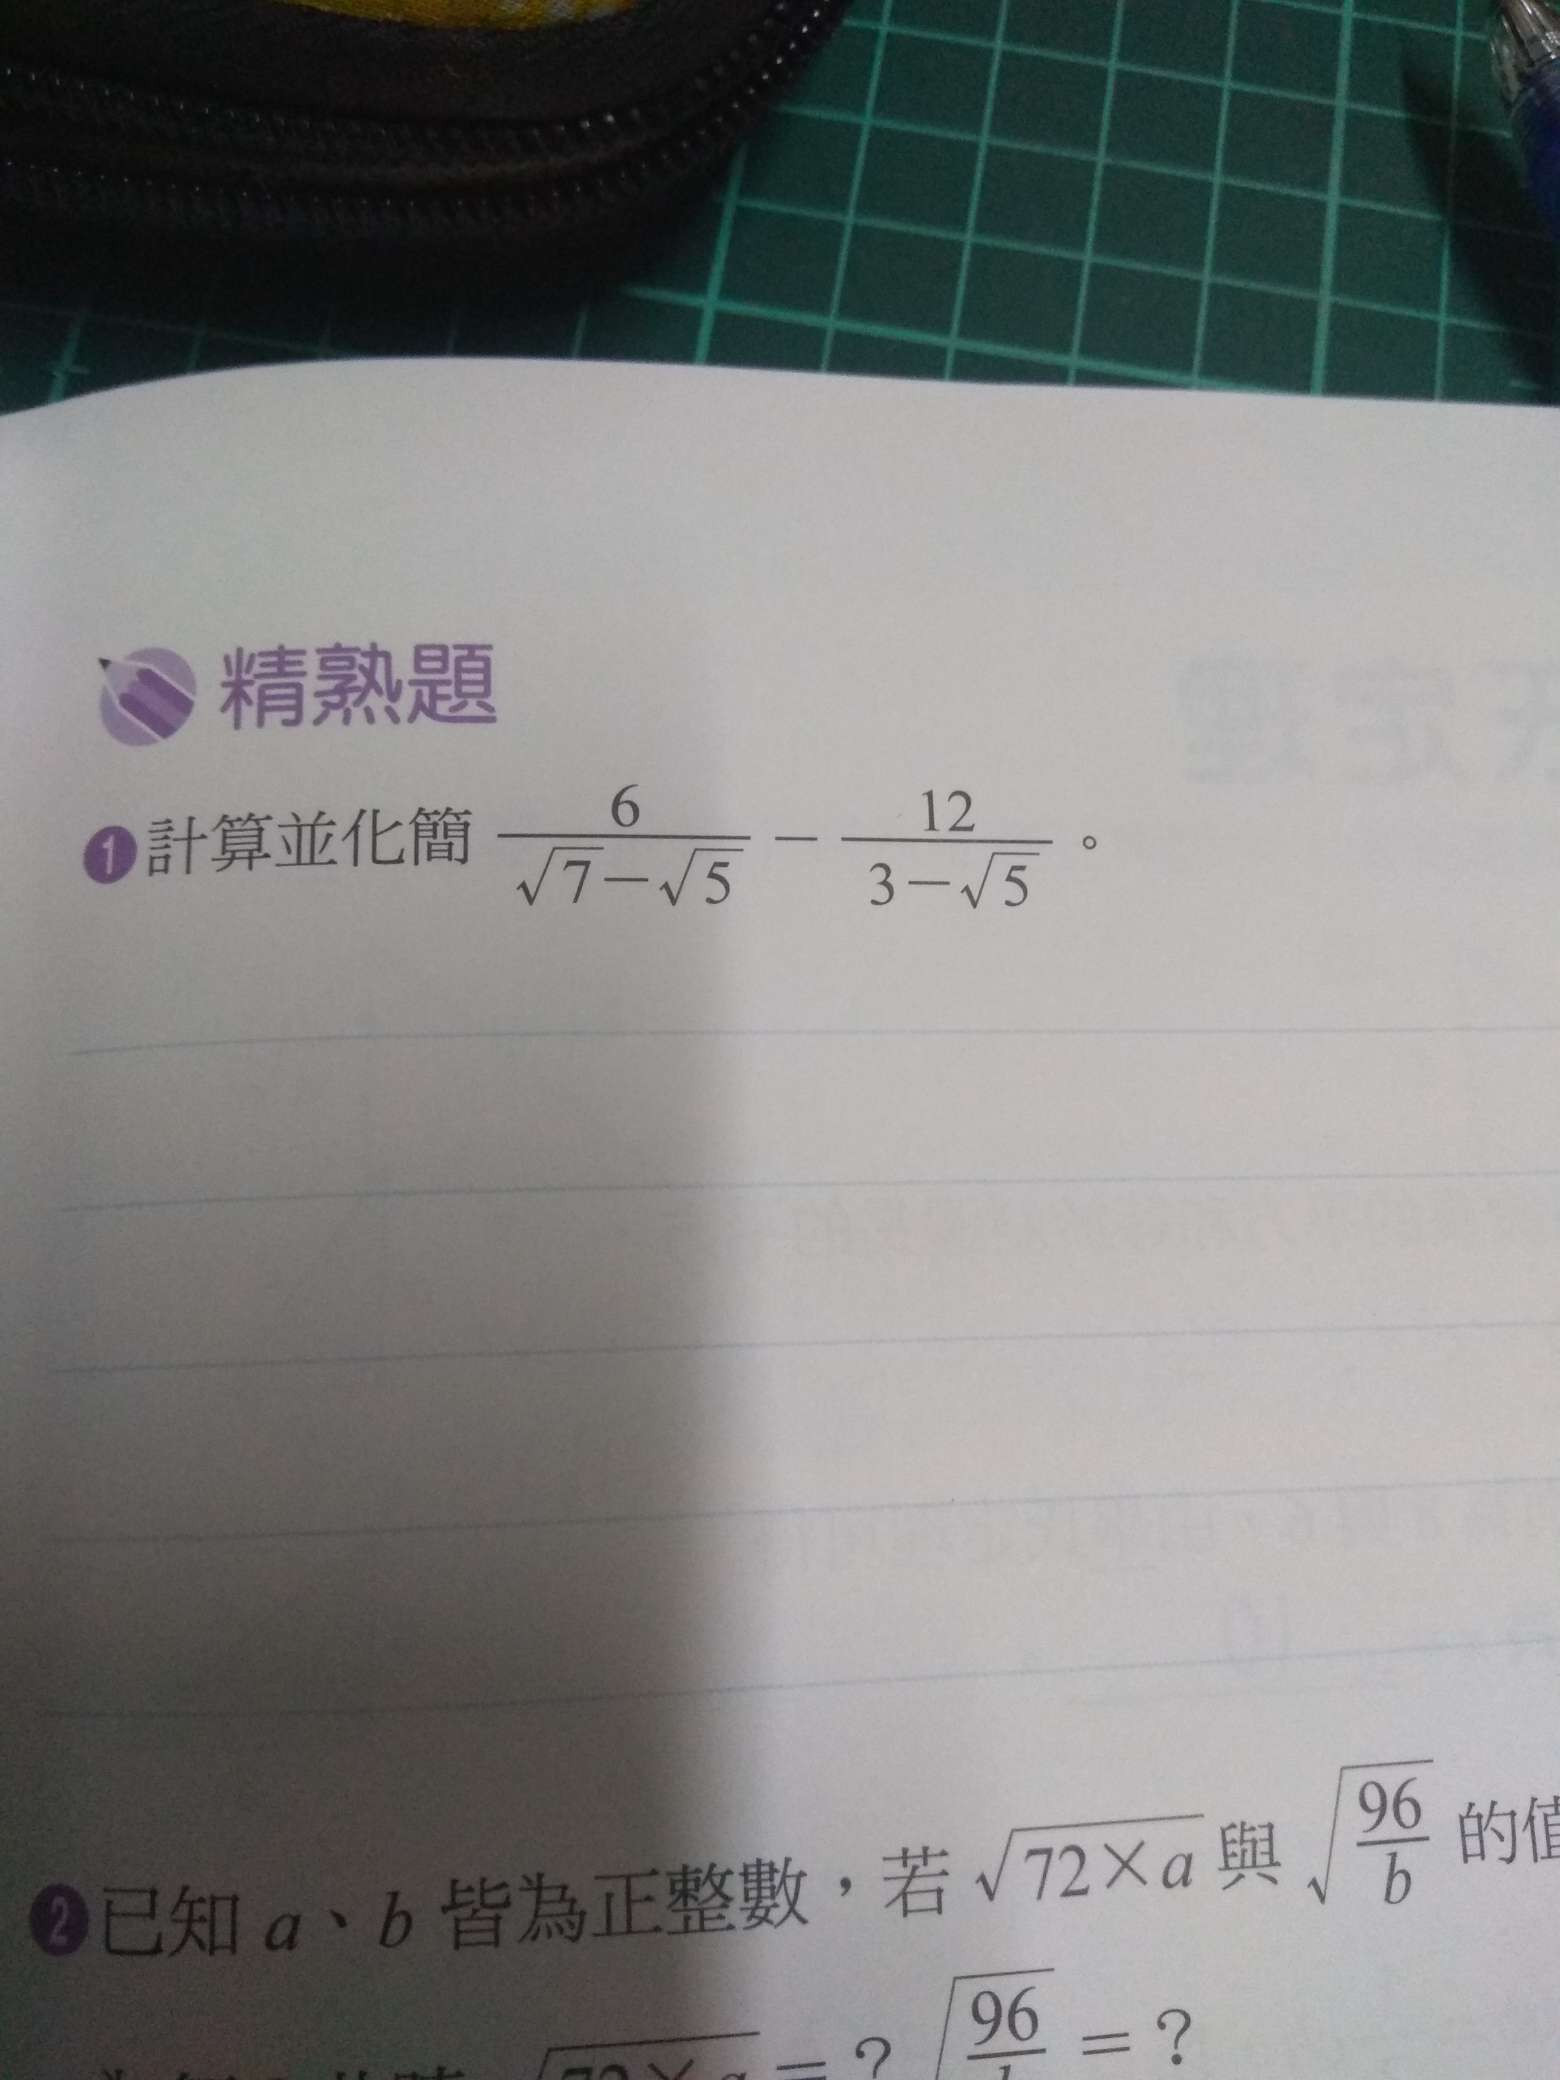 精熟題
❶計算並化簡 6/(√7－√5) － 12/(3－√5)。
❷已知 a、b 皆為正整數，若 √(72×a) 與 √(96/b) 的值
√(72×a) ＝？√(96/b) ＝？